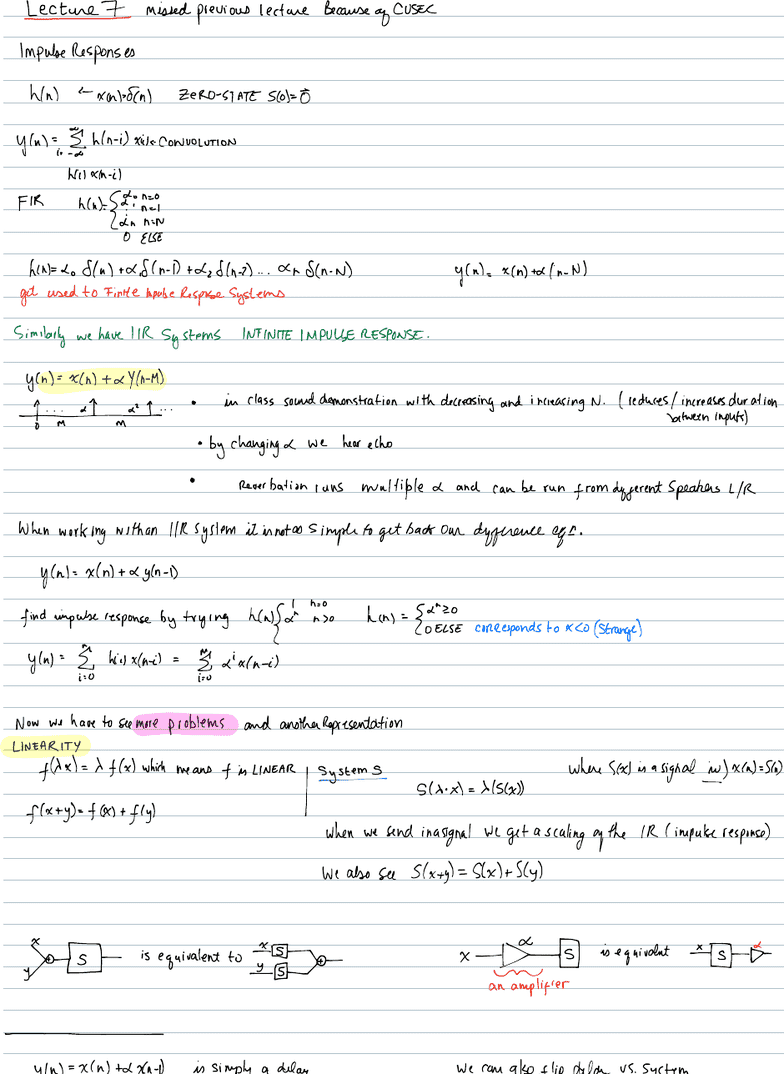 Lecture 7 missed previous lecture Because of CUSEC
Impulse Responses
h(n) ← x(n)=δ(n) ZERO-STATE S(0)=0
y(n) = ∑ h(n-i) x(i) ← CONVOLUTION
i=-∞
h(i) x(n-i)
FIR h(n)= { α₀ n=0
α₁ n=1
αn n=N
0 ELSE
h(n)= α₀ δ(n) + α₁ δ(n-1) + α₂ δ(n-2) ... αn δ(n-N) y(n)= x(n)+α(n-N)
get used to Finite Impulse Response Systems
Similarly we have IIR Systems INFINITE IMPULSE RESPONSE.
y(n) = x(n) + α y(n-M)
0 M α M α² ...
• in class sound demonstration with decreasing and increasing N. (reduces/increases duration
between inputs)
• by changing α we hear echo
• Reverbation runs multiple α and can be run from different Speakers L/R
When working with an IIR system it is not as simple to get back our dyfference eqs.
y(n)= x(n) + α y(n-1)
find impulse response by trying h(n) { 1 n=0
αⁿ n>0
h(n) = { αⁿ ≥0
0 ELSE corresponds to x<0 (Strange)
y(n) = ∑ h(i) x(n-i) = ∑ αⁱ x(n-i)
i=0 i=0
Now we have to see more problems and another Representation
LINEARITY
f(λx) = λ f(x) which means f is LINEAR
f(x+y) = f(x) + f(y)
System S where S(x) is a signal x(n)=S(n)
S(λ·x) = λ(S(x))
when we send in a signal we get a scaling of the IR (impulse response)
We also see S(x+y) = S(x) + S(y)
x y + S is equivalent to x S y S +
x α S is equivalent x S α
an amplifier
y(n) = x(n) + α x(n-1) is simply a delay we can also flip delay vs. system